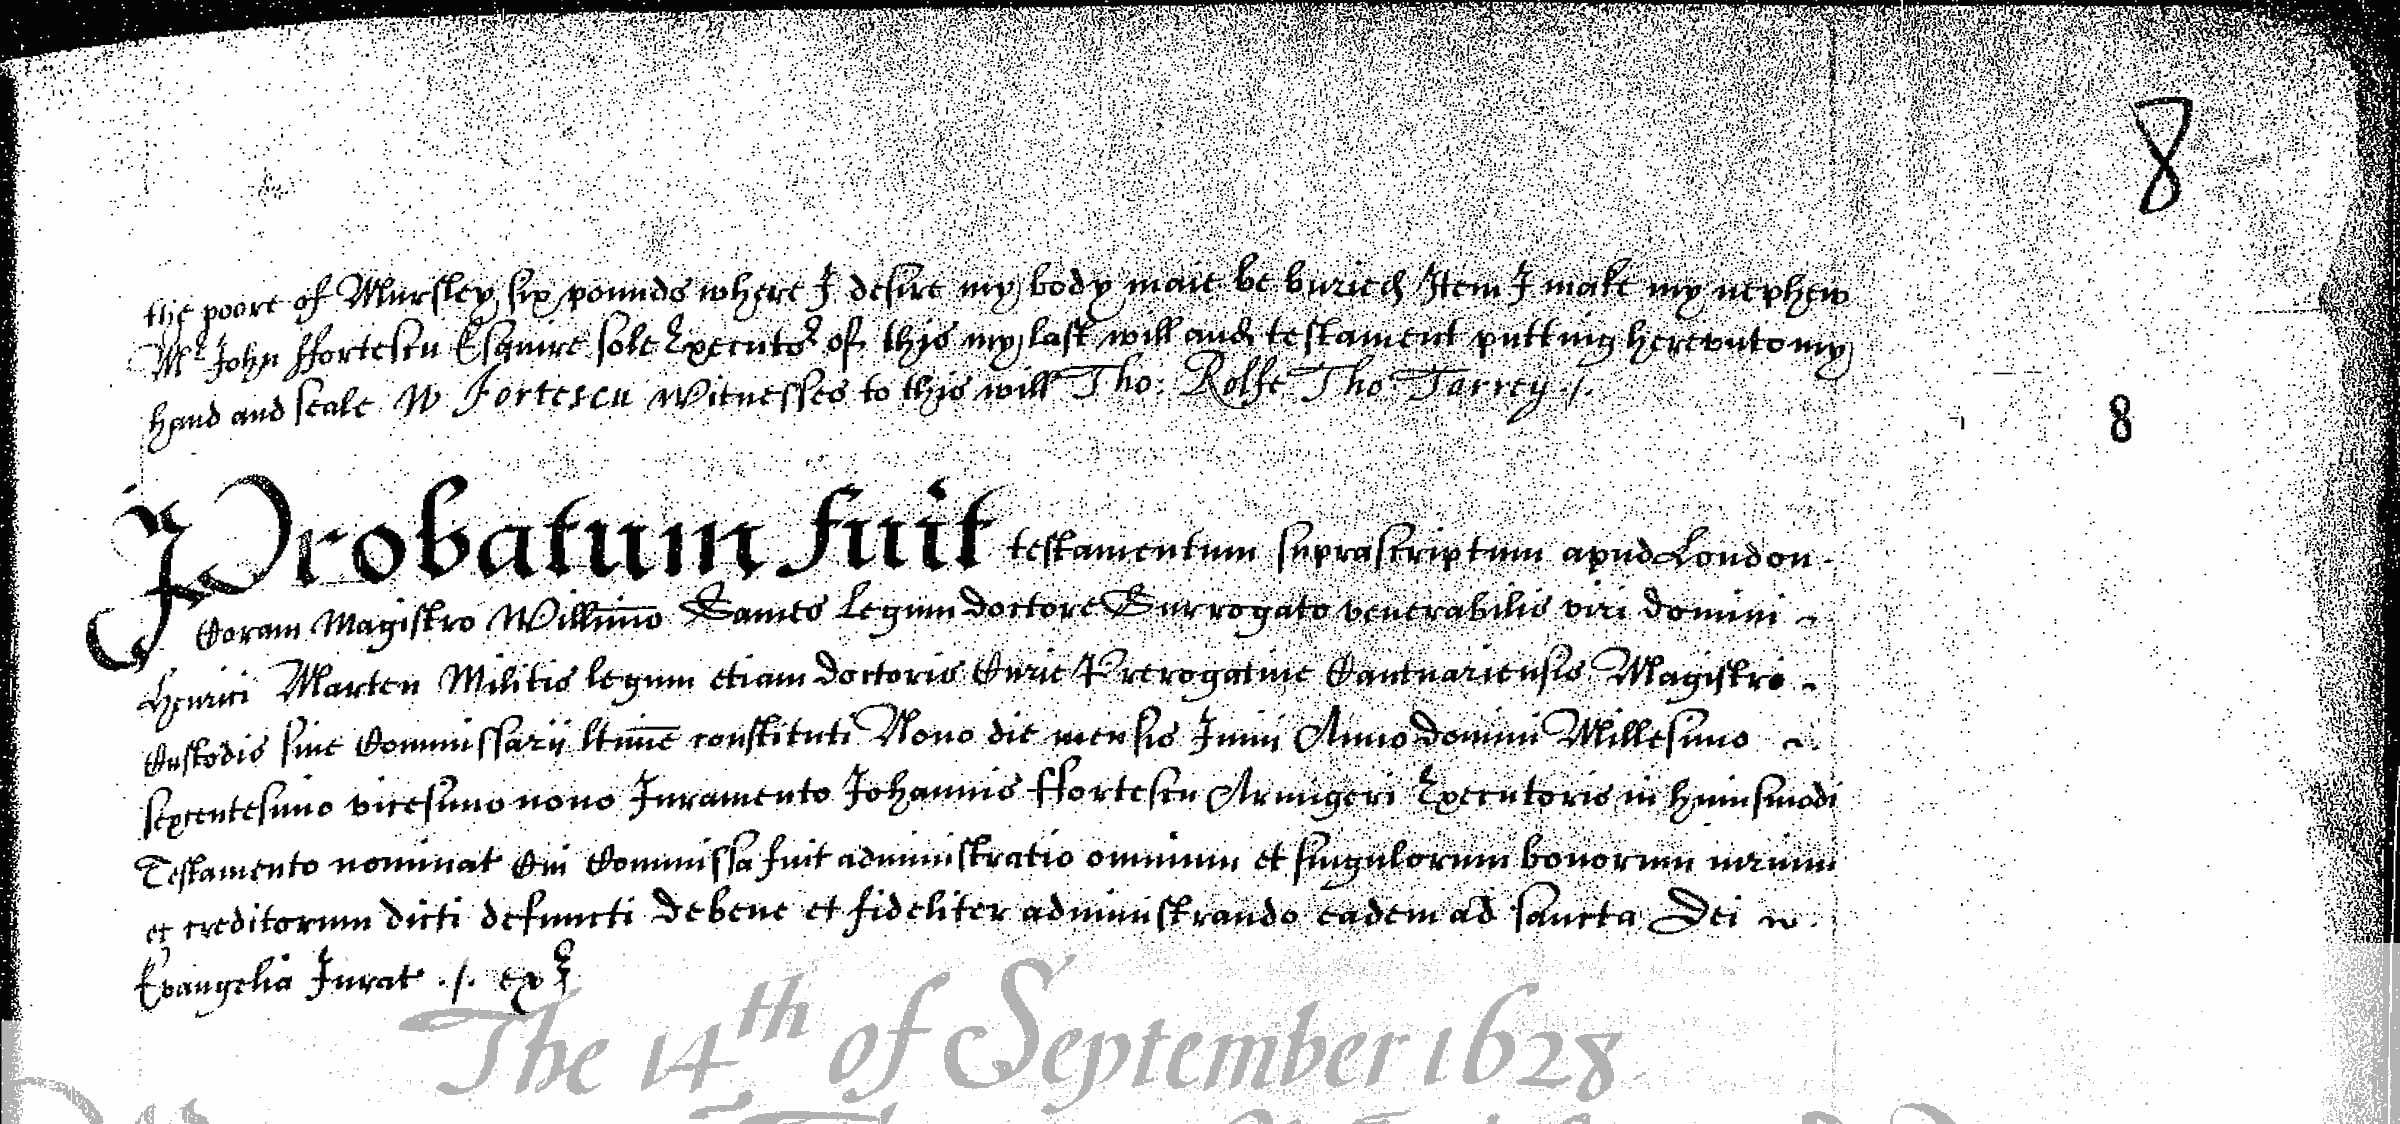 8
the poore of Mursley six pounds where I desire my body maie be buried Item I make my nephew
Mr John ffortescu Esquire sole Executor of this my last will and testament putting herevnto my
hand and seale W Fortescu Witnesses to this will Tho: Rolfe Tho Torrey ./.
8
Probatum fuit testamentum suprascriptum apud London
Coram Magistro Willimo Sames Legum doctore Surrogato venerabilis viri domini
Henrici Marten Militis legum etiam doctoris Curie Prerogatiue Cantuariensis Magistri
Custodis siue Commissarij ltime constituti Nono die mensis Junij Anno domini Millesimo
sexcentesimo vicesimo nono Juramento Johannis ffortescu Armigeri Executoris in huiusmodi
Testamento nominat Cui Commissa fuit administratio omnium et singulorum bonorum iurium
et creditorum dicti defuncti De bene et fideliter administrando eadem ad sancta Dei
Evangelia Jurat ./. ex
The 14th of September 1628